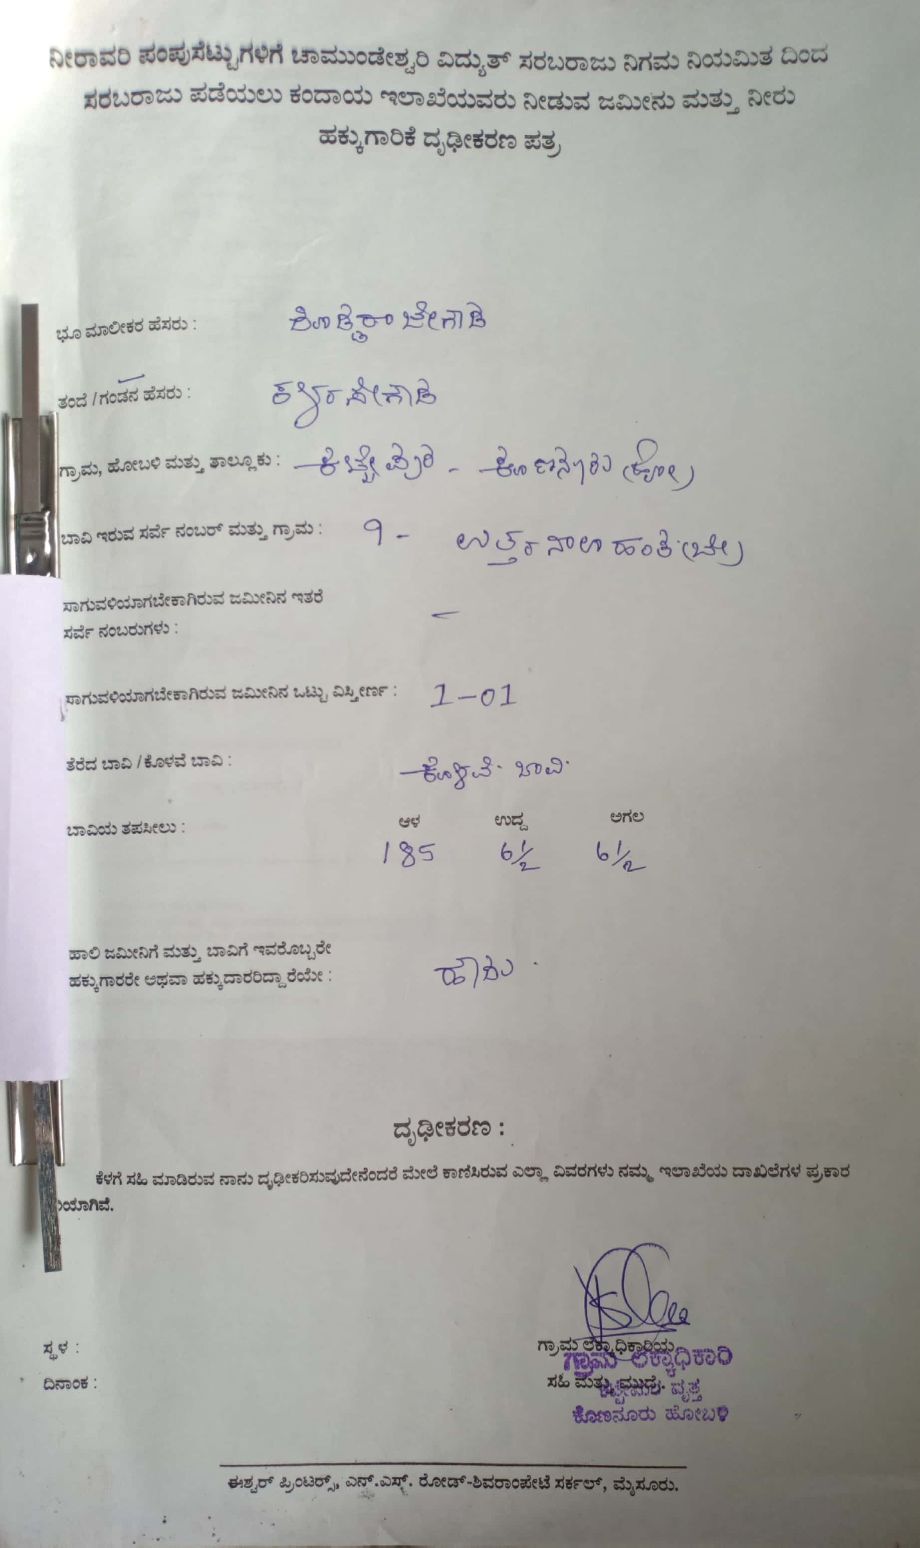 ನೀರಾವರಿ ಪಂಪುಸೆಟ್ಟುಗಳಿಗೆ ಚಾಮುಂಡೇಶ್ವರಿ ವಿದ್ಯುತ್ ಸರಬರಾಜು ನಿಗಮ ನಿಯಮಿತ ದಿಂದ
ಸರಬರಾಜು ಪಡೆಯಲು ಕಂದಾಯ ಇಲಾಖೆಯವರು ನೀಡುವ ಜಮೀನು ಮತ್ತು ನೀರು
ಹಕ್ಕುಗಾರಿಕೆ ದೃಢೀಕರಣ ಪತ್ರ
ಭೂ ಮಾಲೀಕರ ಹೆಸರು :
ತಂದೆ / ಗಂಡನ ಹೆಸರು :
ಗ್ರಾಮ, ಹೋಬಳಿ ಮತ್ತು ತಾಲ್ಲೂಕು : ಕೊಣನೂರು (ಹೋ)
ಬಾವಿ ಇರುವ ಸರ್ವೆ ನಂಬರ್ ಮತ್ತು ಗ್ರಾಮ :
ಸಾಗುವಳಿಯಾಗಬೇಕಾಗಿರುವ ಜಮೀನಿನ ಇತರೆ
ಸರ್ವೆ ನಂಬರುಗಳು : –
ಸಾಗುವಳಿಯಾಗಬೇಕಾಗಿರುವ ಜಮೀನಿನ ಒಟ್ಟು ವಿಸ್ತೀರ್ಣ : 1-01
ತೆರೆದ ಬಾವಿ / ಕೊಳವೆ ಬಾವಿ : ಕೊಳವೆ ಬಾವಿ
ಬಾವಿಯ ತಪಸೀಲು : ಆಳ ಉದ್ದ ಅಗಲ
185 6½ 6½
ಹಾಲಿ ಜಮೀನಿಗೆ ಮತ್ತು ಬಾವಿಗೆ ಇವರೊಬ್ಬರೇ
ಹಕ್ಕುಗಾರರೇ ಅಥವಾ ಹಕ್ಕುದಾರರಿದ್ದಾರೆಯೇ : ಹೌದು
ದೃಢೀಕರಣ :
ಕೆಳಗೆ ಸಹಿ ಮಾಡಿರುವ ನಾನು ದೃಢೀಕರಿಸುವುದೇನೆಂದರೆ ಮೇಲೆ ಕಾಣಿಸಿರುವ ಎಲ್ಲಾ ವಿವರಗಳು ನಮ್ಮ ಇಲಾಖೆಯ ದಾಖಲೆಗಳ ಪ್ರಕಾರ
ಸ್ಥಳ : ಗ್ರಾಮ ಲೆಕ್ಕಾಧಿಕಾರಿಯ
ಗ್ರಾಮ ಲೆಕ್ಕಾಧಿಕಾರಿ
ದಿನಾಂಕ : ಸಹಿ ಮತ್ತು ಮುದ್ರೆ.
ವೃತ್ತ
ಕೊಣನೂರು ಹೋಬಳಿ
ಈಶ್ವರ್ ಪ್ರಿಂಟರ್ಸ್, ಎನ್.ಎಸ್. ರೋಡ್-ಶಿವರಾಂಪೇಟೆ ಸರ್ಕಲ್, ಮೈಸೂರು.